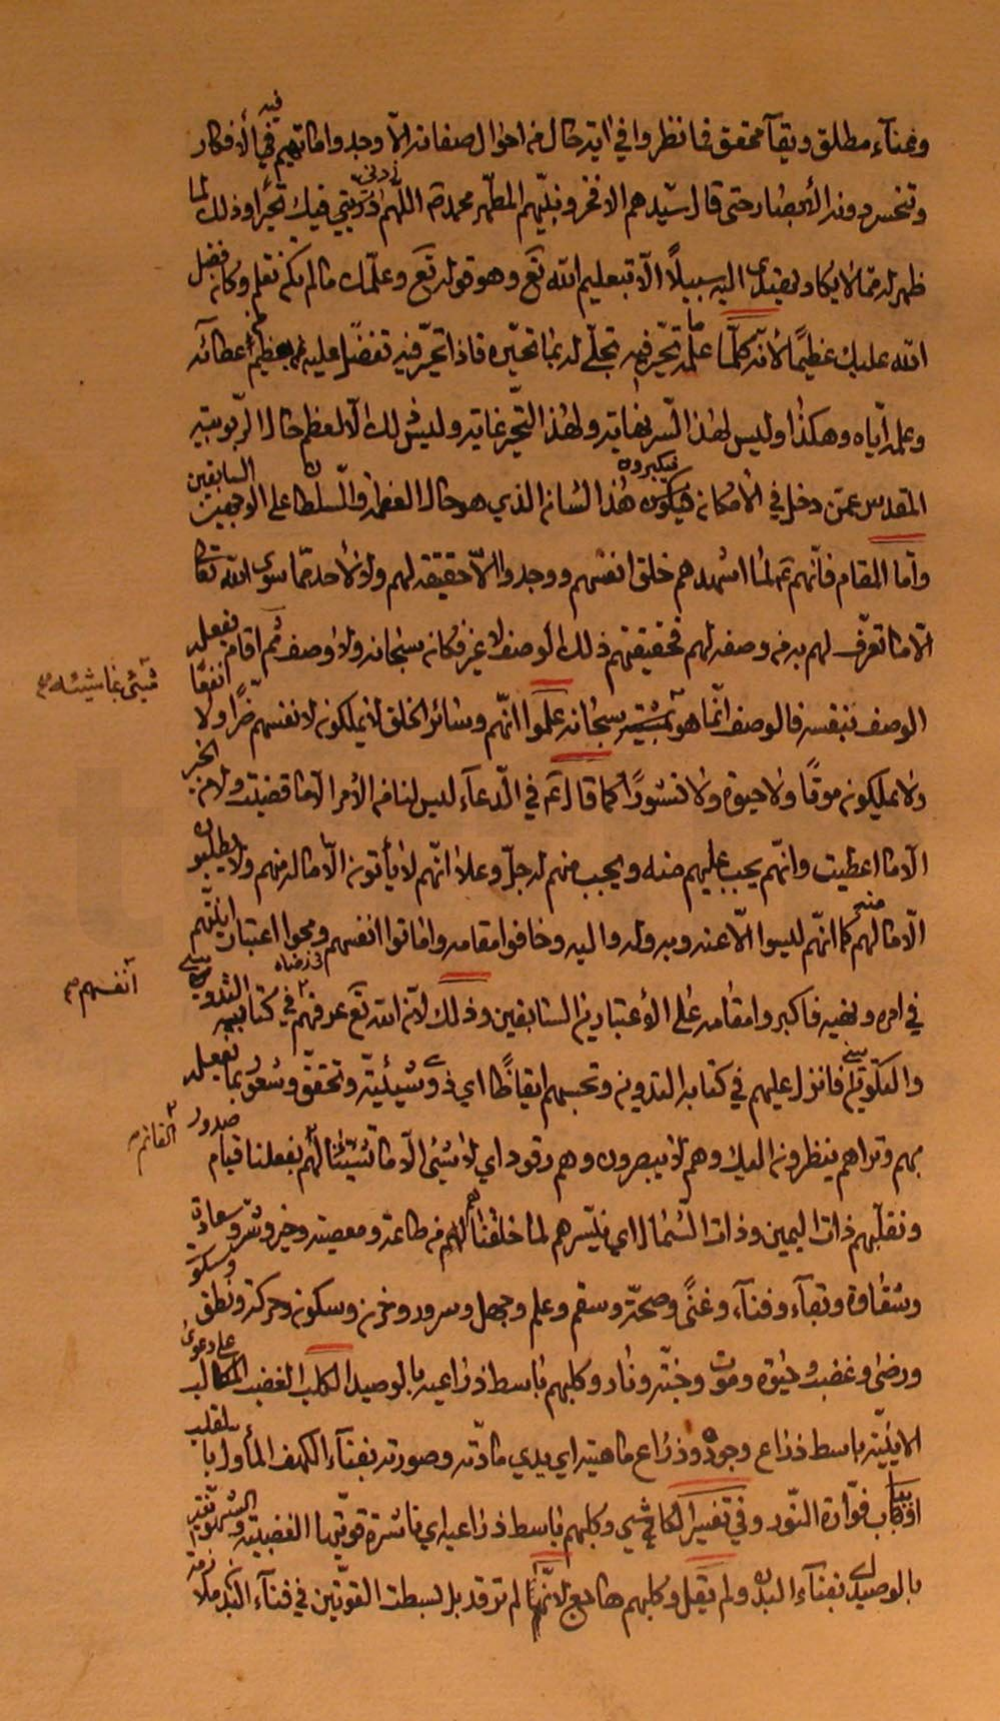 وغناء مطلق وبقآء محقق فانظروا في اية حال من احوال صفاته الّا وجد وا ما تهيم فيه الأفكار
وتنحسر دونه الأبصار حتى قال سيّدهم الافخر ونبيّهم المطهّر محمد ص اللّهم زدني فيك تحيّرا وذلك لما
ظهر له ممّا لا يكاد يهتدى اليه سبيلًا الّا بتعليم الله تع وهو قوله تع وعلّمك مالم تكن تعلم وكان فضل
الله عليك عظيمًا لأنّه كلّما علّمه ما تحيّر فيه تجلّى له بما تحيّره فاذا تحيّر فيه تفضّل عليه بعظيم عطائه
وعلمه ايّاه وهكذا وليس لهذا السّير نهاية ولهذا التحيّر غاية وليس ذلك الّا لعظم حال الرّبوبية
المقدس عمّن دخل في الأمكان فيكبرون هذا الشان الذي هو حال العظمة والسّلطان على الوجهين السابقين
وامّا المقام فانّهم ع لمّا اشهدهم خلق انفسهم ووجدوا الّا حقيقة لهم ولا لأحد ممّا سوى الله تعالى
الّا ما تعرّف لهم به من وصفه لهم فحقيقتهم ذلك الوصف لا غير وكان سبحانه ولا وصف ثم اقام بفعله
شيئ بمشيئته صح
الوصف بنفسه فالوصف انّما هو سبحانه علموا انّهم وسائر الخلق لا يملكون لأنفسهم ضرًّا ولا نفعًا
ولا يملكون موتًا ولا حيوة ولا نشورًا كما قال ع في الدّعآء ليس لنا من الأمر الّا ما قضيت ولا من الخير
الّا ما اعطيت وانّهم يجب عليهم منه ويجب منهم له جلّ وعلا انّهم لا يأتون الّا ما له منهم ولا يطلبون
الّا ما لهم منه كما انّهم ليسوا الّا عنه وبه وله واليه وخافوا مقامه واماتوا انفسهم في رضاه ومحوا اعتبار انّيّتهم
انفسهم صح
في امره ونهيه فاكبروا مقامه على الأعتبارين السّابقين وذلك لأنّ الله تع عرفهم في كتابيه التدويني
والتكويني فانزل عليهم في كتابه التدويني وتحسبهم ايقاظًا اي ذوي شيئيّة وتحقق وشعور بما نفعله
بهم وتراهم ينظرون اليك وهم لا يبصرون وهم رقود اي لا شيئ الّا ما شيّئنا لهم بفعلنا قيام صدور
القائم صح
ونقلّبهم ذات اليمين وذات الشّمال اي نيسّرهم لما خلقناهم من طاعة ومعصية وخير وشر وسعادة
وشقاوة وبقآء وفنآء وغنًى وصحّة وسقم وعلم وجهل وسرور وحزن وسكون وحركة ونطق وسكوت
ورضى وغضب وحيوة وموت وجنّة ونار وكلبهم باسط ذراعيه بالوصيد الكلب الغضب على دعوى
الانّيّة باسط ذراع وجوده وذراع ماهيته اي يدي مادّته وصورته بفنآء الكهف المأول بالقلب
او باب فوّارة النّور وفي تفسير الكاشي وكلبهم باسط ذراعيه اي ناشرة قوّتيها الغضبية والشهويّة
بالوصيد اي بفنآء البدن ولم يقل وكلبهم هاجع لأنّها لم ترقد بل بسطت القوّتين في فنآء البدن ملازمة